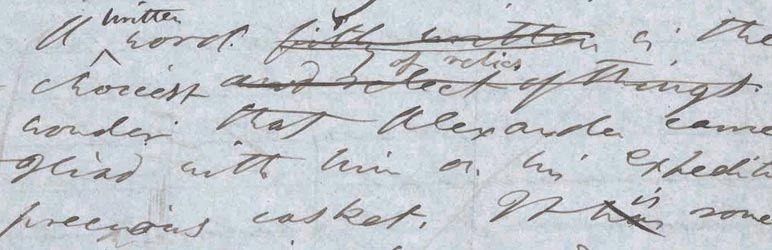 A written word fitly written is the
choicest and select of things of relics
wonder that Alexander carrie
Iliad with him on his expediti
precious casket. It is some